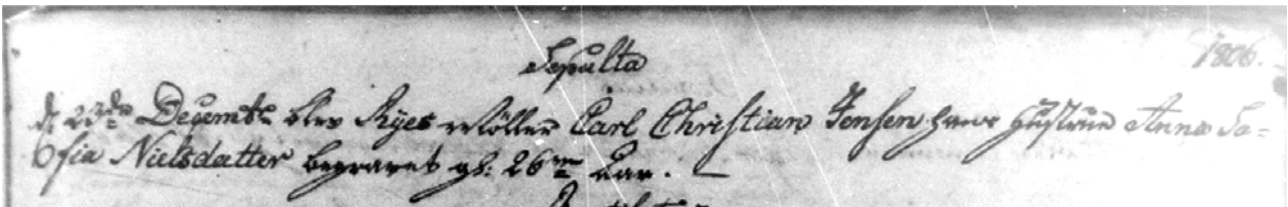 Sepulta
1806.
d: 23de Decembr blev Ryes Møller Carl Christian Jensen hans Hustrue Anna So=
fia Nielsdatter begravet gl: 26 Aar.